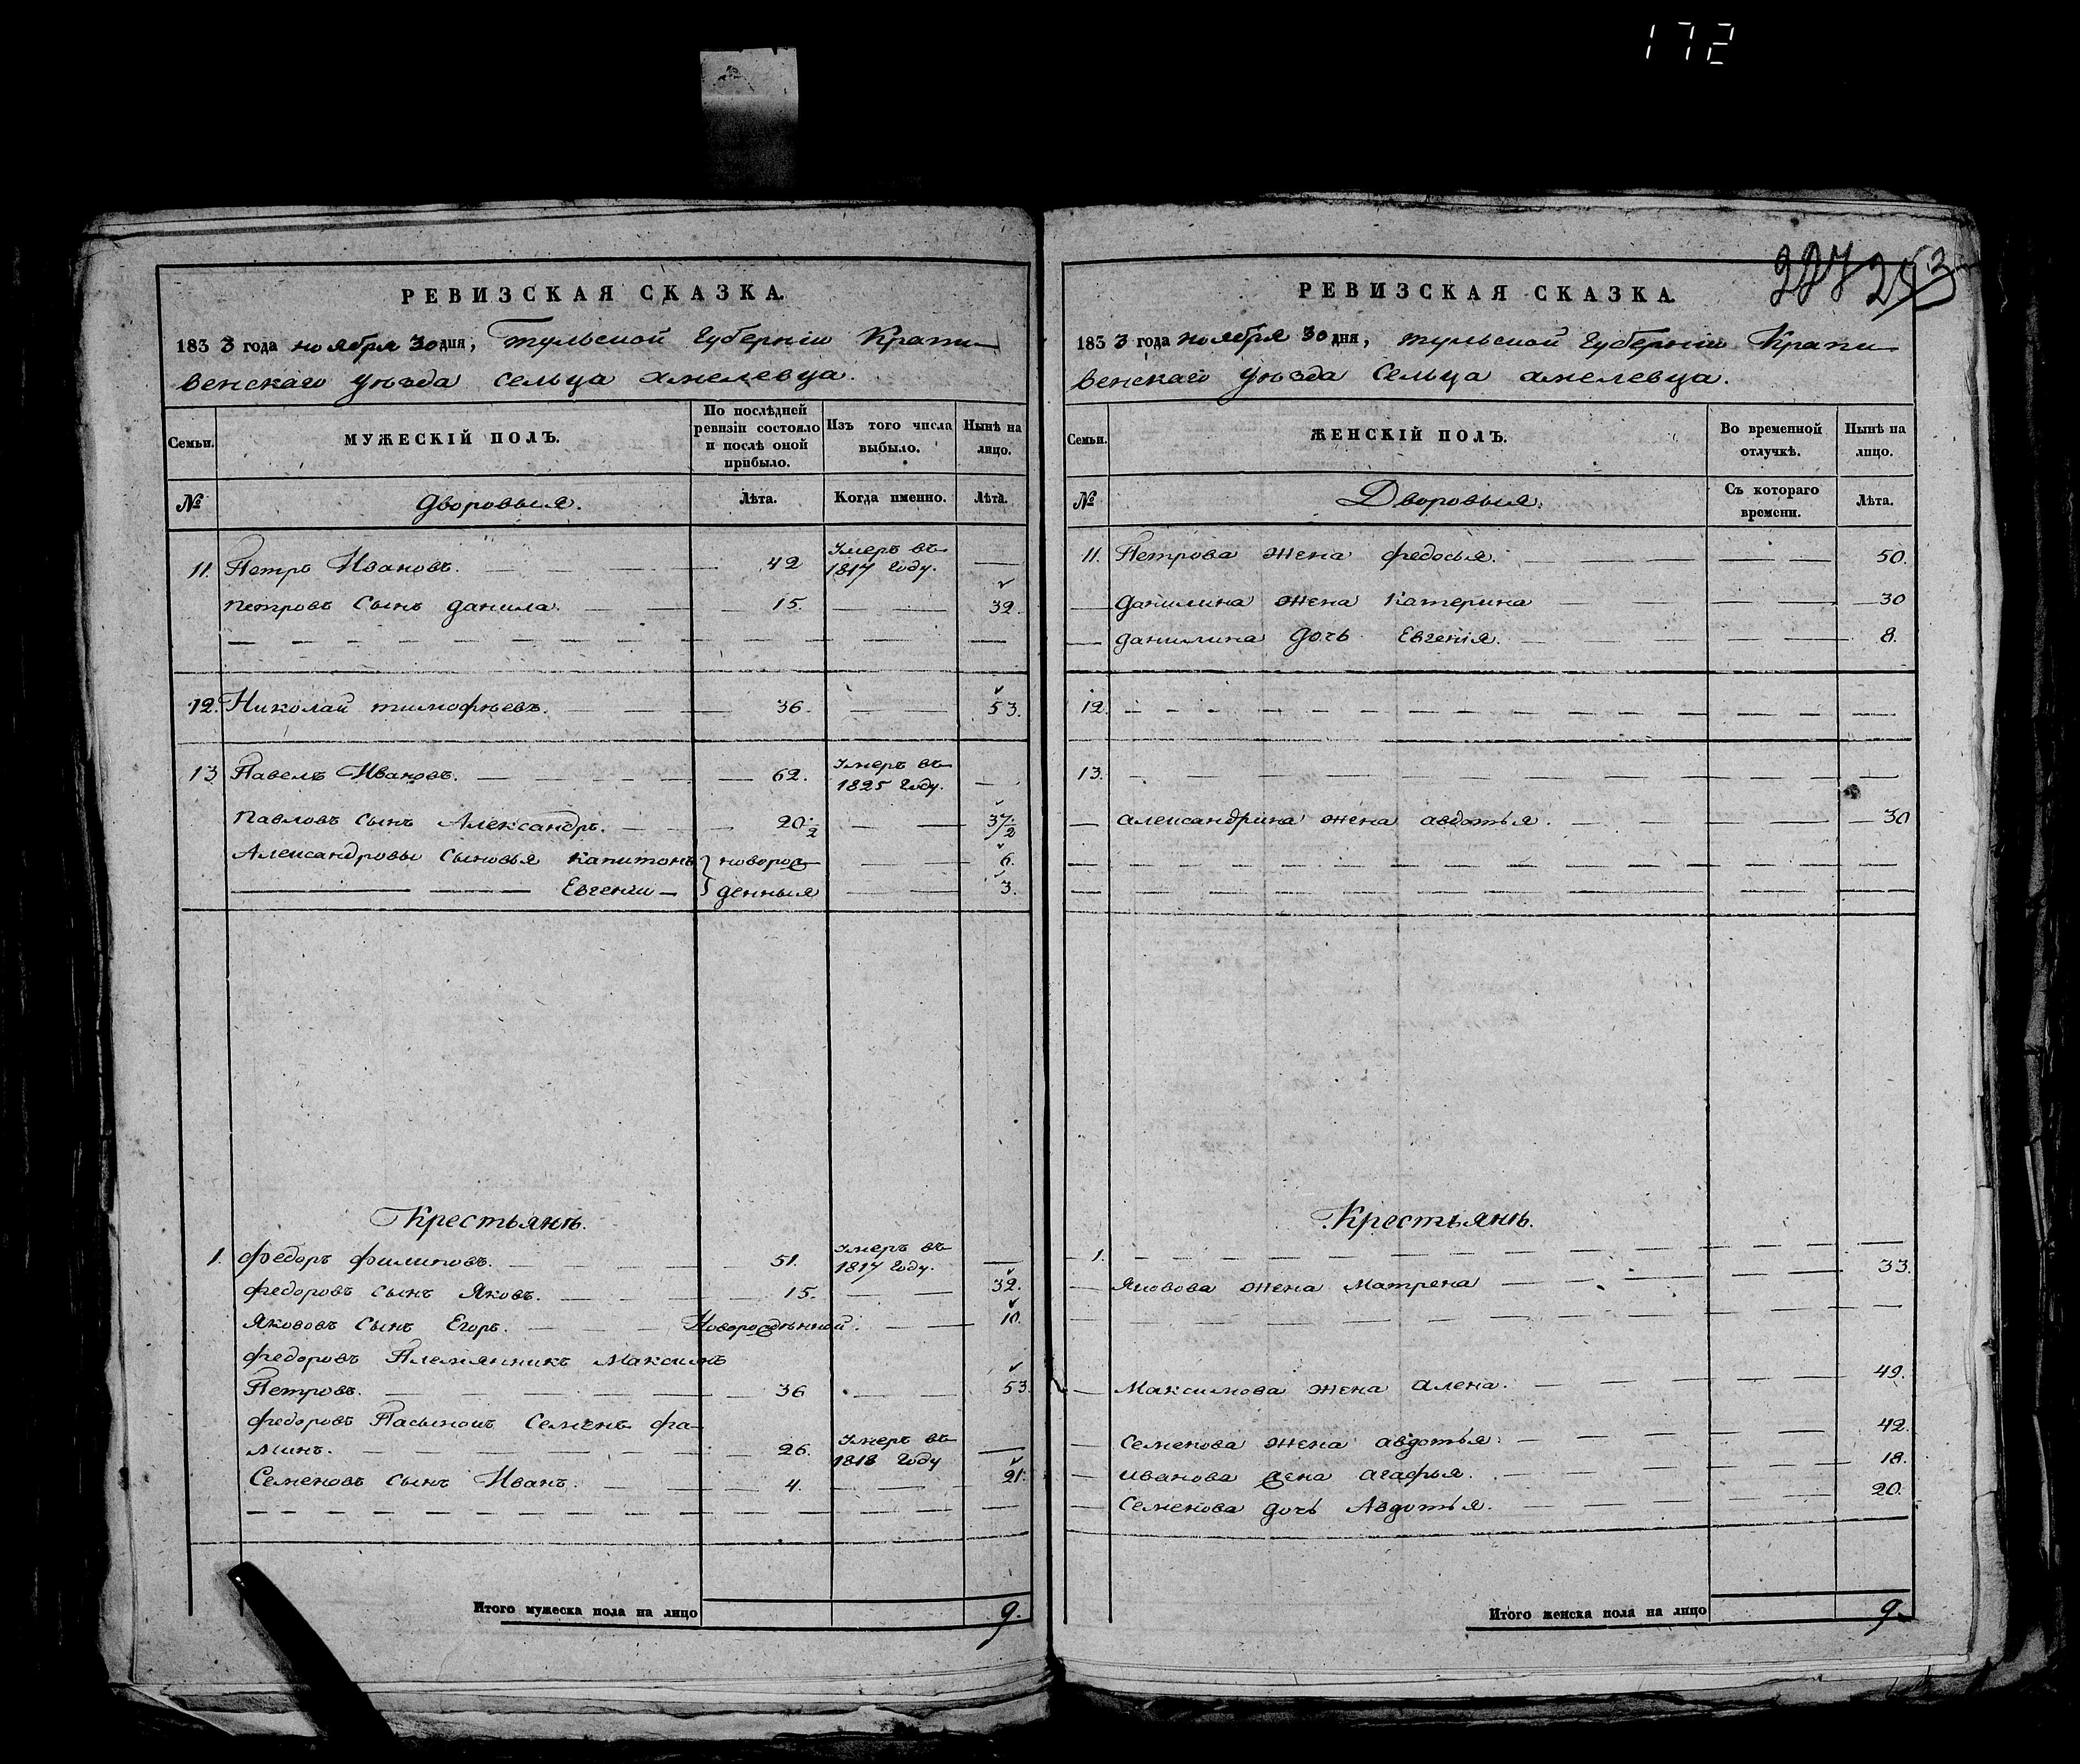 172
РЕВИЗСКАЯ СКАЗКА.
1833 года ноября 30 дня, Тульской Губерніи Крапи-
венскаго уѣзда сельца амелевца.
Семьи. МУЖЕСКІЙ ПОЛЪ. По послѣдней ревизіи состояло и послѣ оной прибыло. Изъ того числа выбыло. Нынѣ на лицо.
№ дворовыя. Лѣта. Когда именно. Лѣта.
11. Петръ Ивановъ. 42 Умеръ въ 1817 году.
Петровъ сынъ данила. 15. 32.
12. Николай тимофѣевъ. 36. 53.
13 Павелъ Ивановъ. 62. Умеръ въ 1825 году.
Павловъ сынъ Александръ. 20 1/2 37 1/2
Александровы сыновья капитонъ новорож- 6.
Евгении денныя 3.
Крестьянѣ.
1. федоръ филиповъ. 51. Умеръ въ 1817 году.
федоровъ сынъ Яковъ. 15. 32.
Якововъ сынъ Егоръ. Новорожденной. 10.
федоровъ Племянникъ Максимъ
Петровъ. 36 53.
федоровъ Пасынокъ Семенъ фа-
минъ. 26. Умеръ въ 1818 году
Семеновъ сынъ Иванъ. 4. 21.
Итого мужеска пола на лицо 9.
253
РЕВИЗСКАЯ СКАЗКА.
1833 года ноября 30 дня, тульской Губерніи Крапи-
венскаго уѣзда Сельца амелевца.
Семьи. ЖЕНСКІЙ ПОЛЪ. Во временной отлучкѣ. Нынѣ на лицо.
№ Дворовыя. Съ котораго времени. Лѣта.
11. Петрова жена федосья. 50.
данилина жена Катерина 30
данилина дочь Евгенія. 8.
12.
13.
александрина жена авдотья. 30
Крестьянѣ.
1.
Яковова жена Матрена 33.
Максимова жена алена. 49.
Семенова жена авдотья. 42.
иванова жена агафья. 18.
Семенова дочь Авдотья. 20.
Итого женска пола на лицо 9.